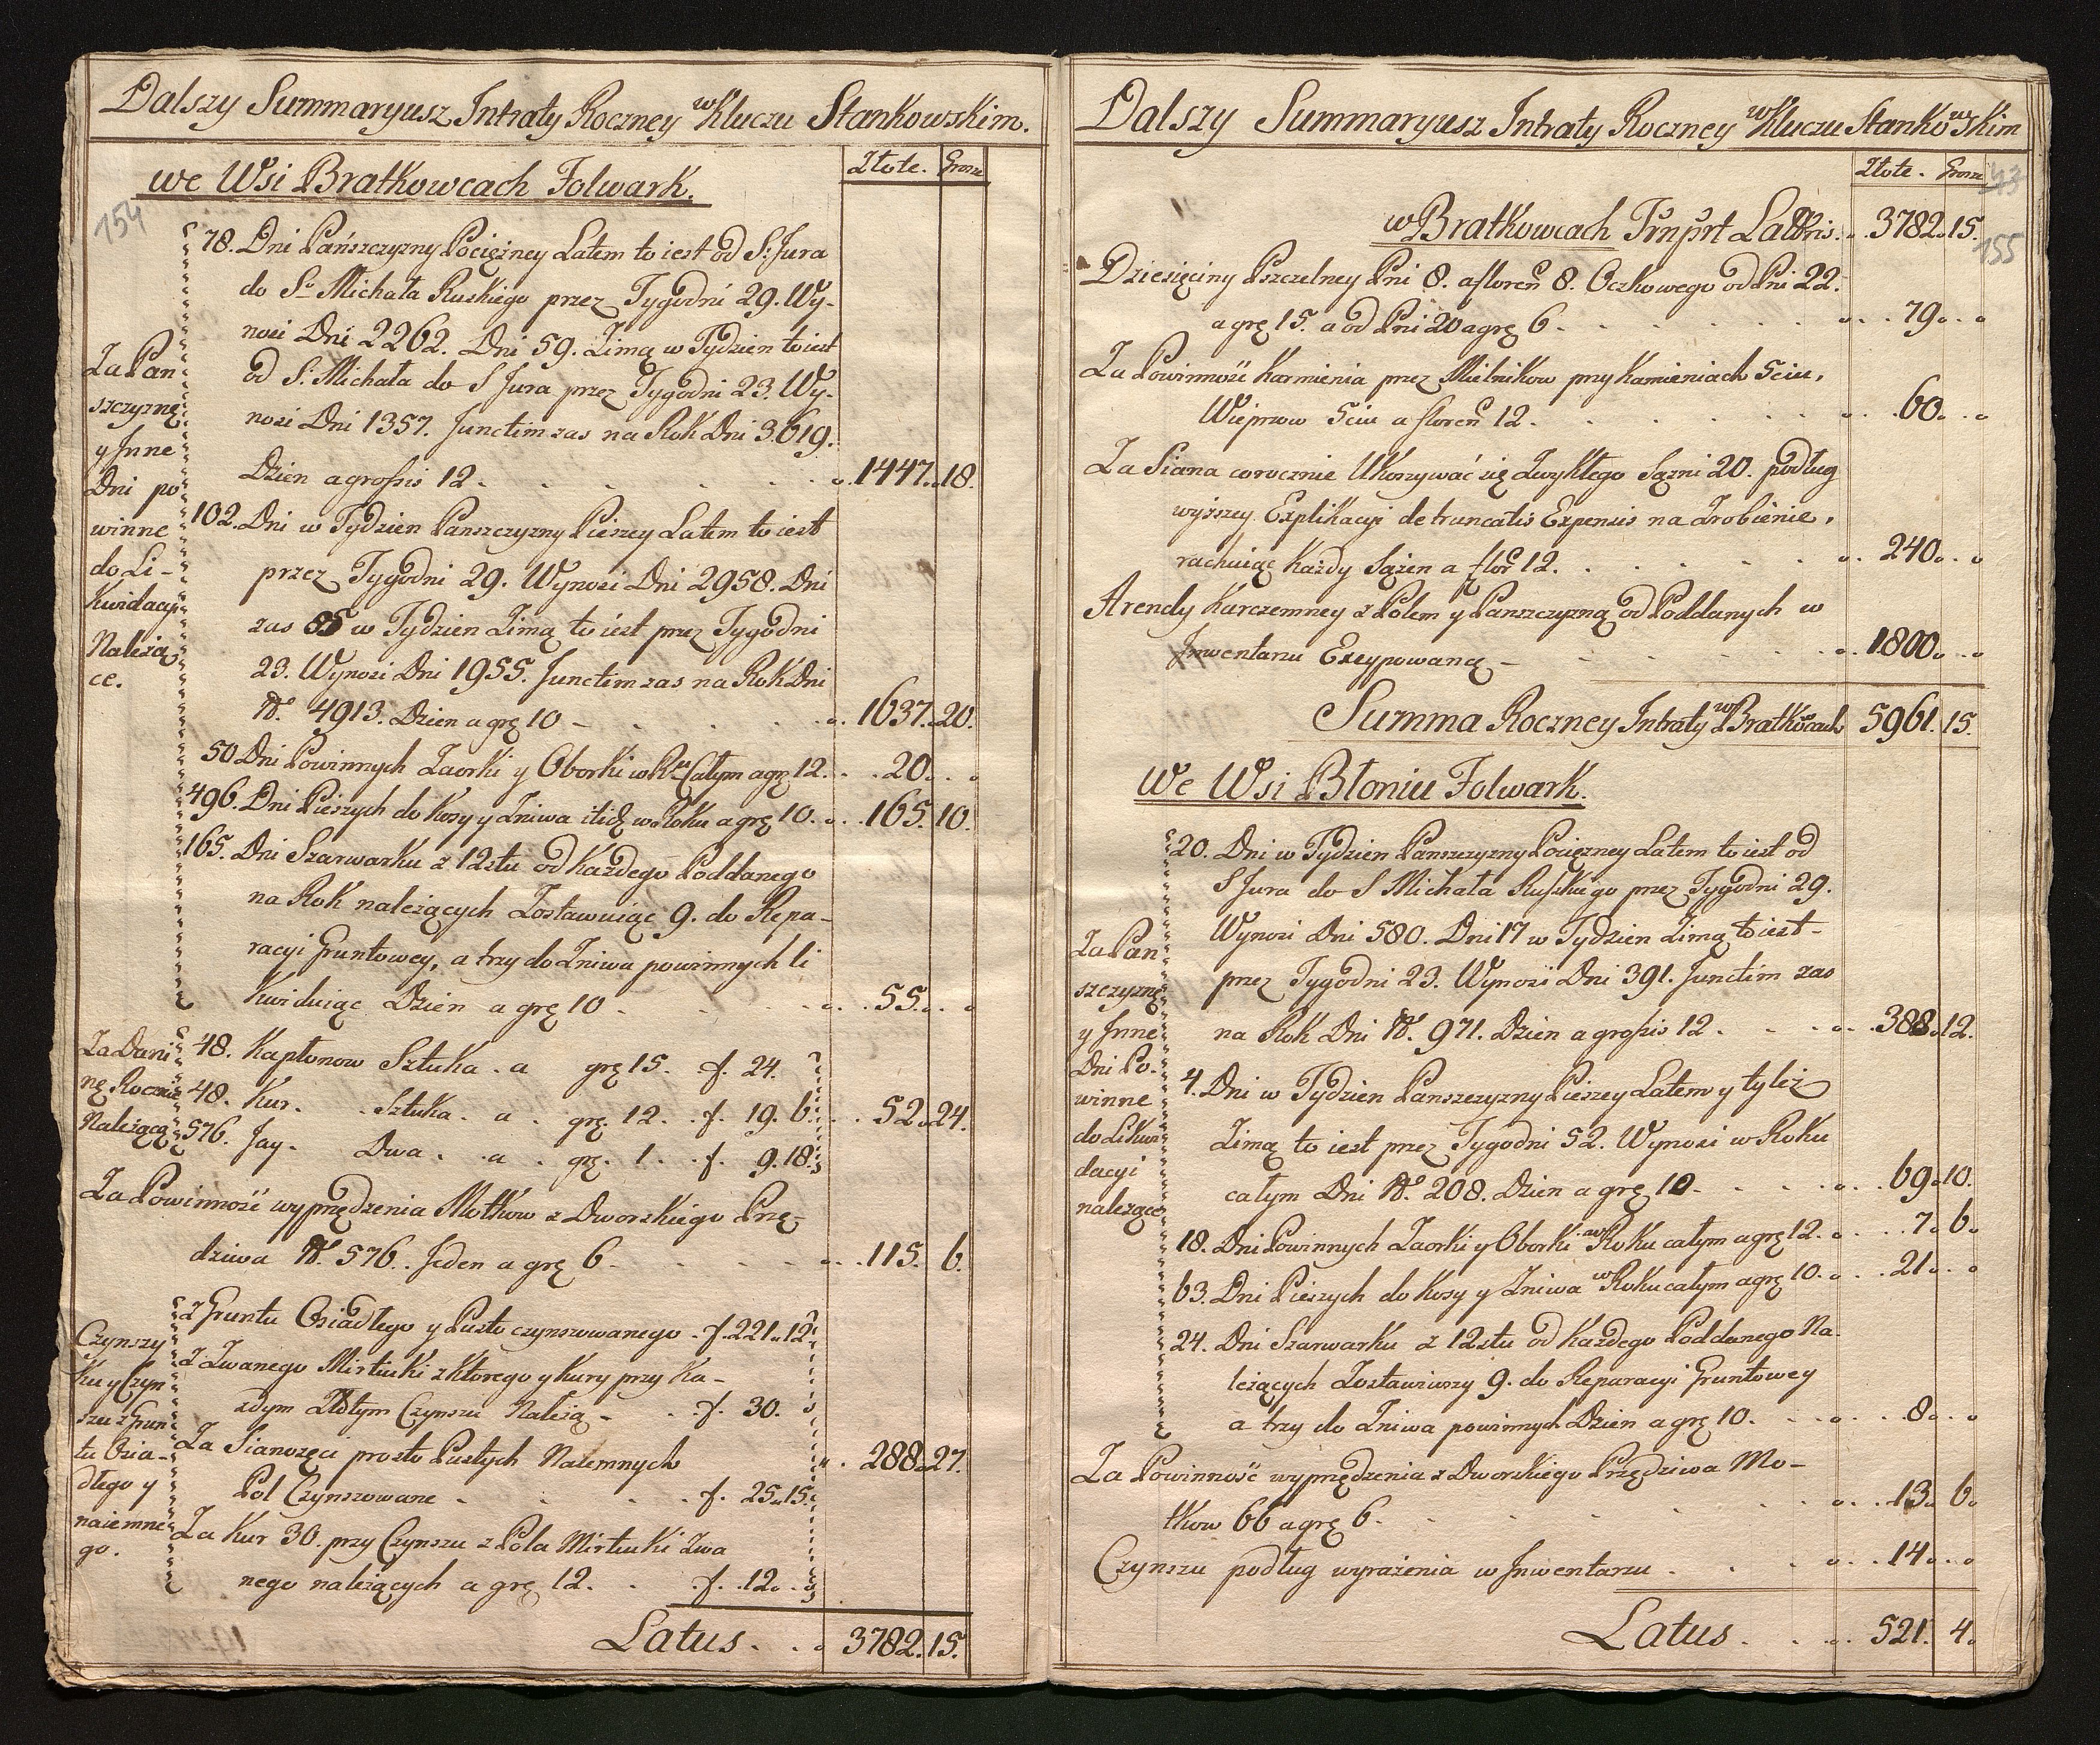 Dalszy Summaryusz Intraty Roczney w Kluczu Stankowskim.
Złote. Grosze
we Wsi Bratkowcach Folwark.
154
Za Pan
szczyznę
y Inne
Dni po
winne
do Li-
kwidacyi
Należą
ce.
78. Dni Pańszczyzny Pociężney Latem to iest od S: Jura
do So Michała Ruskiego przez Tygodni 29. Wy-
nosi Dni 2262. Dni 59. Zimą w Tydzien to iest
od S. Michała do S Jura przez Tygodni 23. Wy-
nosi Dni 1357. Junctim zas na Rok Dni 3619.
Dzien a grossis 12 . . . . . 1447. 18.
102. Dni w Tydzien Panszczyzny Pieszey Latem to iest
przez Tygodni 29. Wynosi Dni 2958. Dni
zas 85 w Tydzien Zimą to iest przez Tygodni
23. Wynosi Dni 1955. Junctim zas na Rok Dni
No 4913. Dzien a grę 10 - . . . . 1637. 20.
50 Dni Powinnych Zaorki y Oborki w Rku Całym a grę 12. . . 20. . .
496. Dni Pieszych do Kosy y Zniwa w Roku a grę 10. . . 165. 10.
165. Dni Szarwarku z 12stu od Każdego Poddanego
na Rok należących Zostawuiąc 9. do Repa-
racyi Gruntowey, a trzy do Zniwa powinnych li
kwiduiąc Dzien a grę 10 . . . . . 55. . .
Za Dani
nę Rocznie
Należącą
48. Kapłonow Sztuka . a grę 15. . f. 24.
48. Kur. . Sztuka . a . grę. 12. . f. 19. 6. . . 52. 24.
576. Jay. Dwa . . a . grę. 1. . f. 9. 18.
Za Powinność wyprzędzenia Motkow z Dworskiego Przę-
dziwa No. 576. . Jeden a grę 6 . . . . . 115. 6.
Czynszy
ku y Czyn
szu z Grun
tu Osia-
dłego y
naiemne
go.
z Gruntu Osiadłego y Pusto czynszowanego . f. 221. 12.
z Zwanego Mirtiuki z ktorego y kury przy Ka-
zdym Złotym Czynszu Należą - . . f. 30.
Za Sianozęci prosto Pustych Naiemnych . . 288. 27.
Pol Czynszowane . . . . f. 25. 15.
Za Kur 30. przy Czynszu z Pola Mirtiuki Zwa
nego należących a grę 12. . . f. 12. .
Latus. . . 3782. 15.
Dalszy Summaryusz Intraty Roczney w Kluczu Stankowskim
Złote. Grosze
43
w Bratkowcach Trnprt Lateris. . 3782. 15.
155
Dziesięciny Pszczelney Pni 8. a floren 8. Oczkowego od Pni 22.
a grę 15. a od Pni 20 a grę 6 . . . . . . 79. . .
Za Powinność Karmienia przez Mielnikow przy Kamieniach 5ciu,
Wieprzow 5ciu a floren 12. . . . . . 60. . .
Za Siana corocznie Ukoszywać się Zwykłego Sązni 20. podług
wyższey Explikacyi detruncatis Expensis na Zrobienie,
rachuiąc każdy Sązen a flor 12. . . . . . 240. . .
Arendy Karczemney z Polem y Panszczyzną od Poddanych w
Inwentarzu Excypowaną - . . . . . 1800. . .
Summa Roczney Intraty w Bratkowcach 5961. 15.
We Wsi Błoniu Folwark.
Za Pan
szczyznę
y Inne
Dni Po-
winne
do Likwi
dacyi
należące
20. Dni w Tydzien Panszczyzny Pociężney Latem to iest od
S Jura do S Michała Ruskiego przez Tygodni 29.
Wynosi Dni 580. Dni 17 w Tydzien Zimą to iest -
przez Tygodni 23. Wynosi Dni 391. Junctim zas
na Rok Dni No. 971. Dzien a grossis 12 . . . . 388. 12.
4. Dni w Tydzien Panszczyzny Pieszey Latem y tyleż
Zimą to iest przez Tygodni 52. Wynosi w Roku
całym Dni No. 208. Dzien a grę 10. . . . . 69. 10.
18. Dni Powinnych Zaorki y Oborki w Roku całym a grę 12. . . 7. 6.
63. Dni Pieszych do Kosy y Zniwa w Roku całym a grę 10. . . 21. . .
24. Dni Szarwarku z 12stu od Każdego Poddanego Na-
leżących Zostawiwszy 9. do Reparacyi Gruntowey
a trzy do Zniwa powinnych Dzien a grę 10. . . . 8. . .
Za Powinność wyprzędzenia z Dworskiego Przędziwa Mo-
tkow 66 a grę 6 . . . . . . 13. 6.
Czynszu podług wyrażenia w Inwentarzu . . . . 14. . .
Latus . . . . 521. 4.